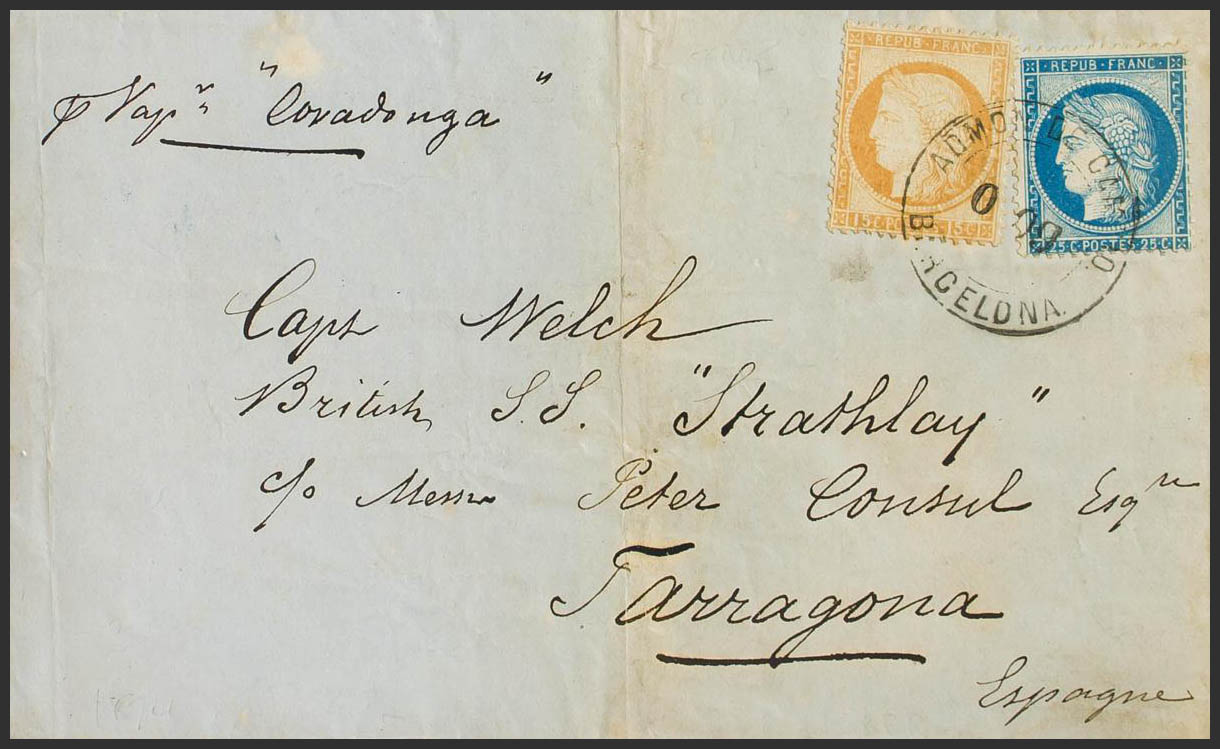 REPUB·FRANC·
15 C·POSTES·15 C
·REPUB·FRANC·
25 C·POSTES·25 C
BARCELONA.
p Vapr "Covadonga"
Capt Welch
British S.S. "Strathlay"
c/o Messrs Peter Consul Esqre
Tarragona
Espagne